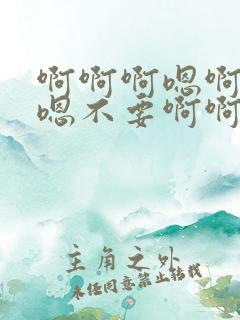 啊啊啊嗯啊
嗯不要啊啊
主角之外
未经同意禁止转载